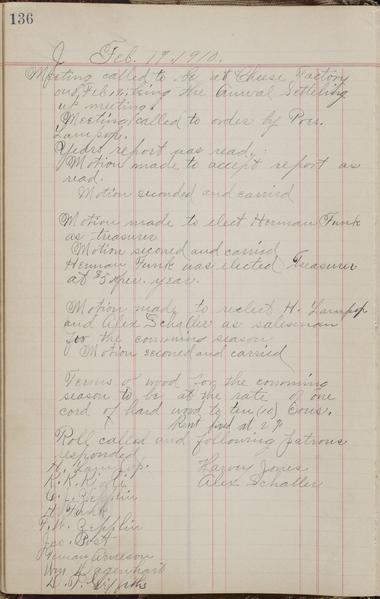 136
Feb. 19, 1910.
Meeting called to be at Cheese Factory
on Feb. being the Annual Settleing
up meeting.
Meeting called to order by Pres.
Lampop.
Yedrs report was read.
Motion made to accept report as
read.
Motion seconded and carried
Motion made to elect Herman Funk
as treasurer
Motion seconed and carried
Herman Funk was elected Treasurer
at $5 per. year.
Motion made to reelect H. Lampop
and Alex Schaller as salesman
for the comming season
Motion seconed and carried
Terms of wood for the comming
season to be at the rate of one
cord of hard wood to ten (10) Cows.
Rent fixed at
Roll called and following Patrons
responded
H. Lampop. Harvey Jones
K. K. Alex Schaller
C. L. Zepplin
H. Funk
F. W. Zepplin
Jac. Post
Arneson
Wm Hagenhart
D. D.